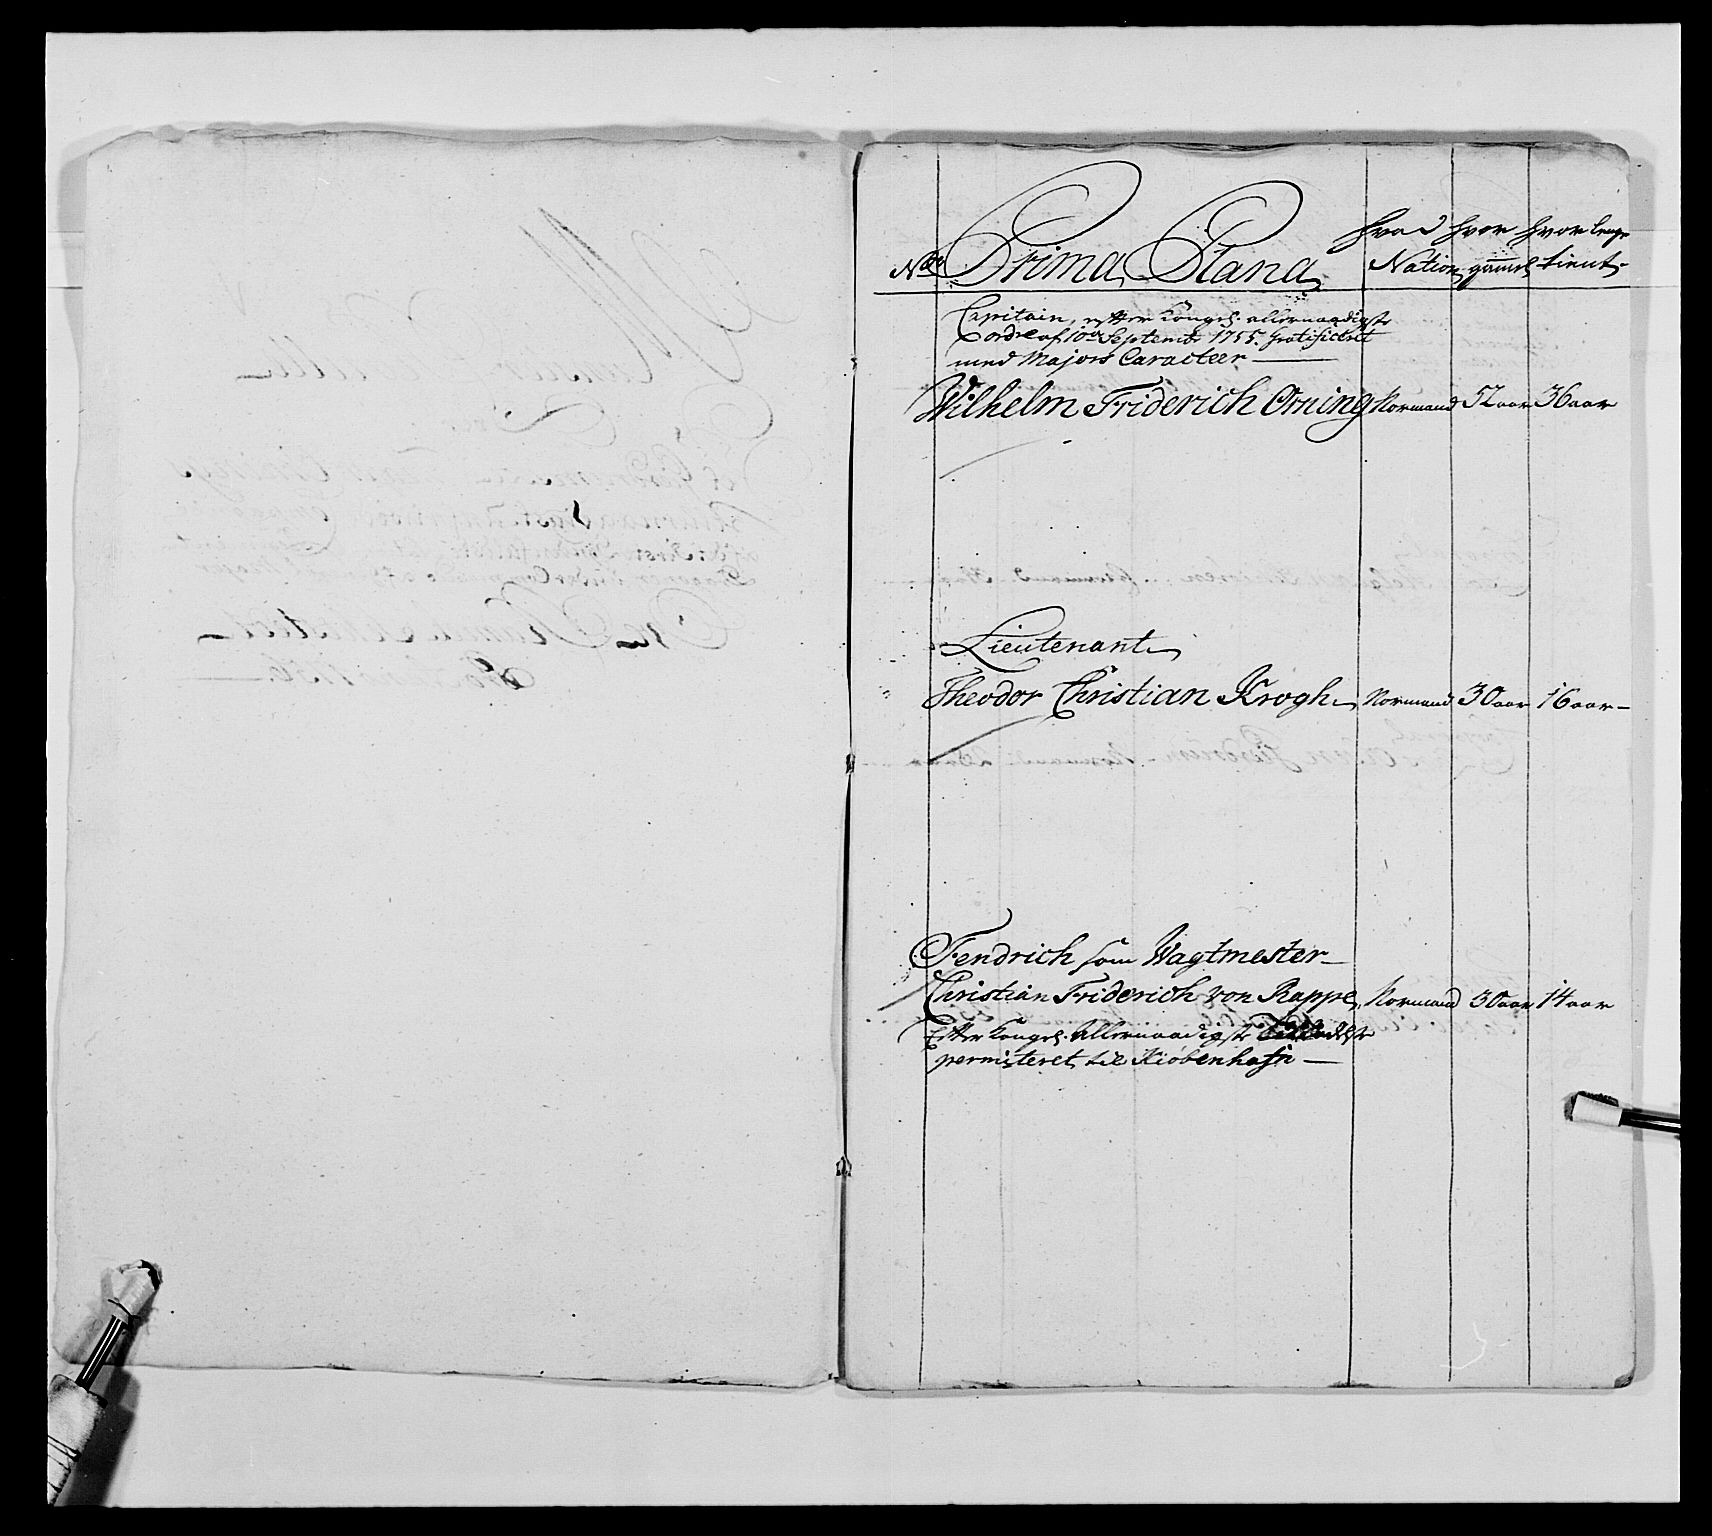 Hvad Hvor Hvor lenge
No Prima Plana Nation gammel tient
Capitain, efter Kongel. allernaadigste
ordre af 10de Septembr 1755. Gratificeret
med Majors Caracteer
Wilhelm Friderich Orning Normand 52 aar 36 aar
Lieutenant
Theodor Christian Krogh Normand 30 aar 16 aar
Fendrich som Wagtmester
Christian Friderich von Rappe Normand 30 aar 14 aar
Efter Kongel. Allernaadigste
permiteret til Kiøbenhafn